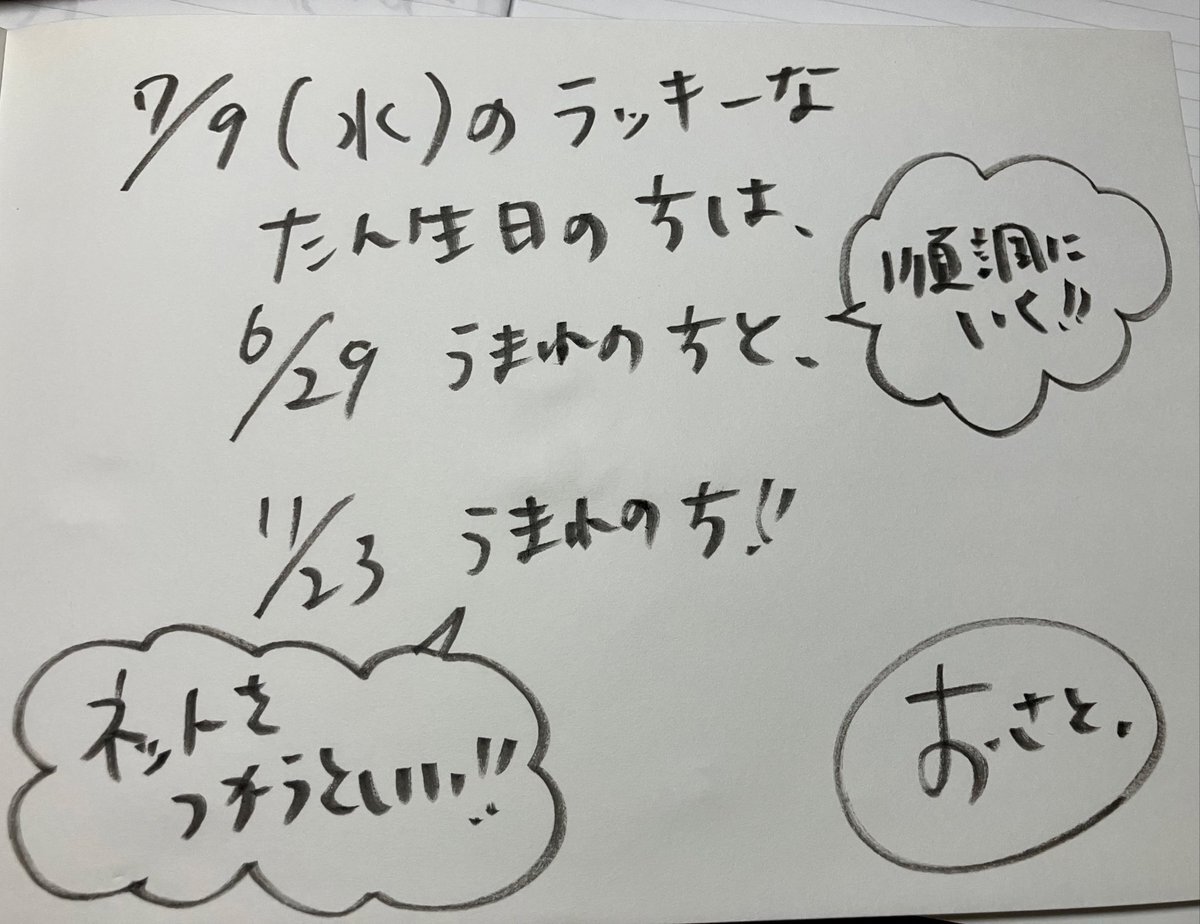 7/9(水)のラッキーな
たん生日の方は、
6/29 うまれの方と、
順調に
いく!!
11/23 うまれの方!!
ネットを
つかうといい!!
おさと、